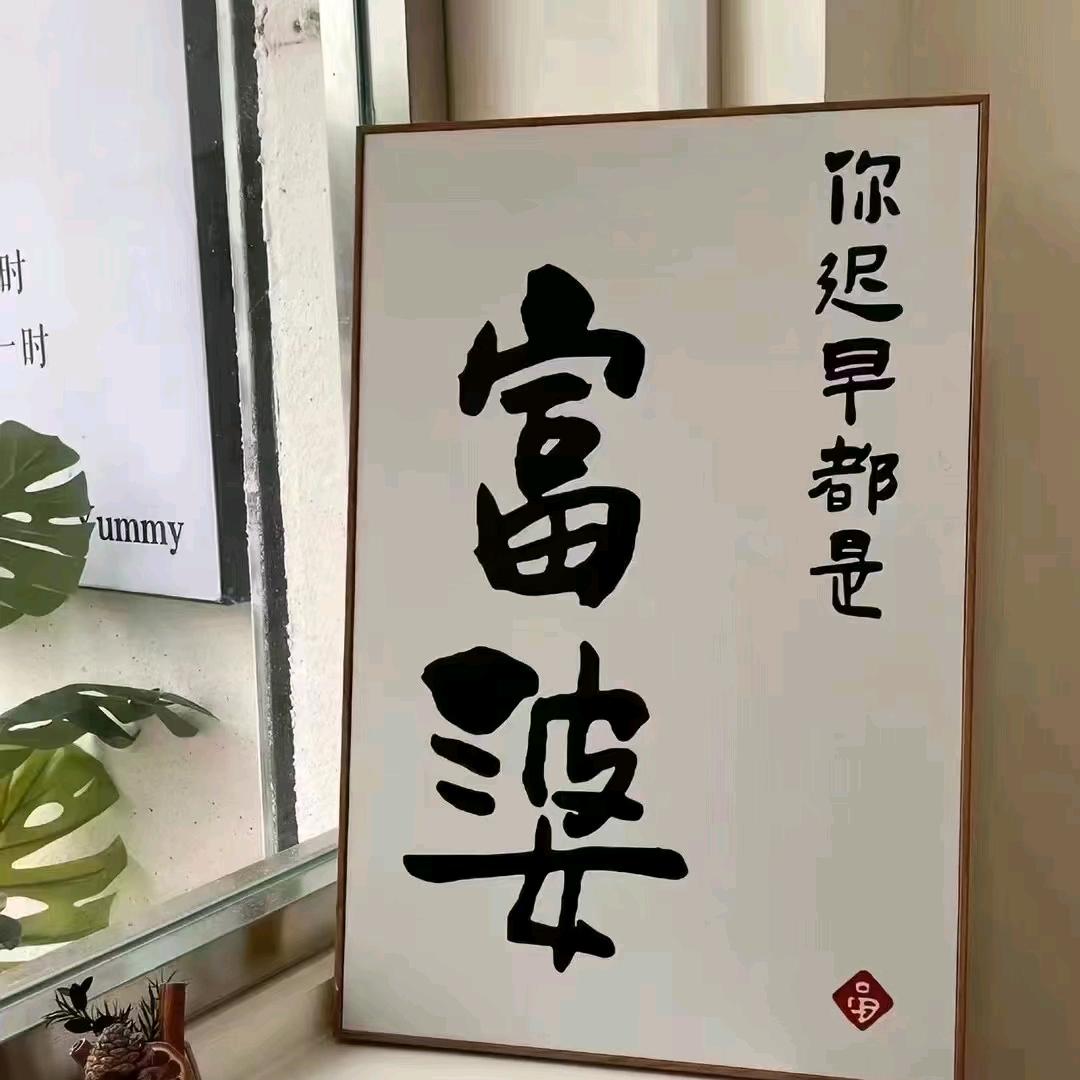 你迟早都是
富婆
富
时
一时
Yummy